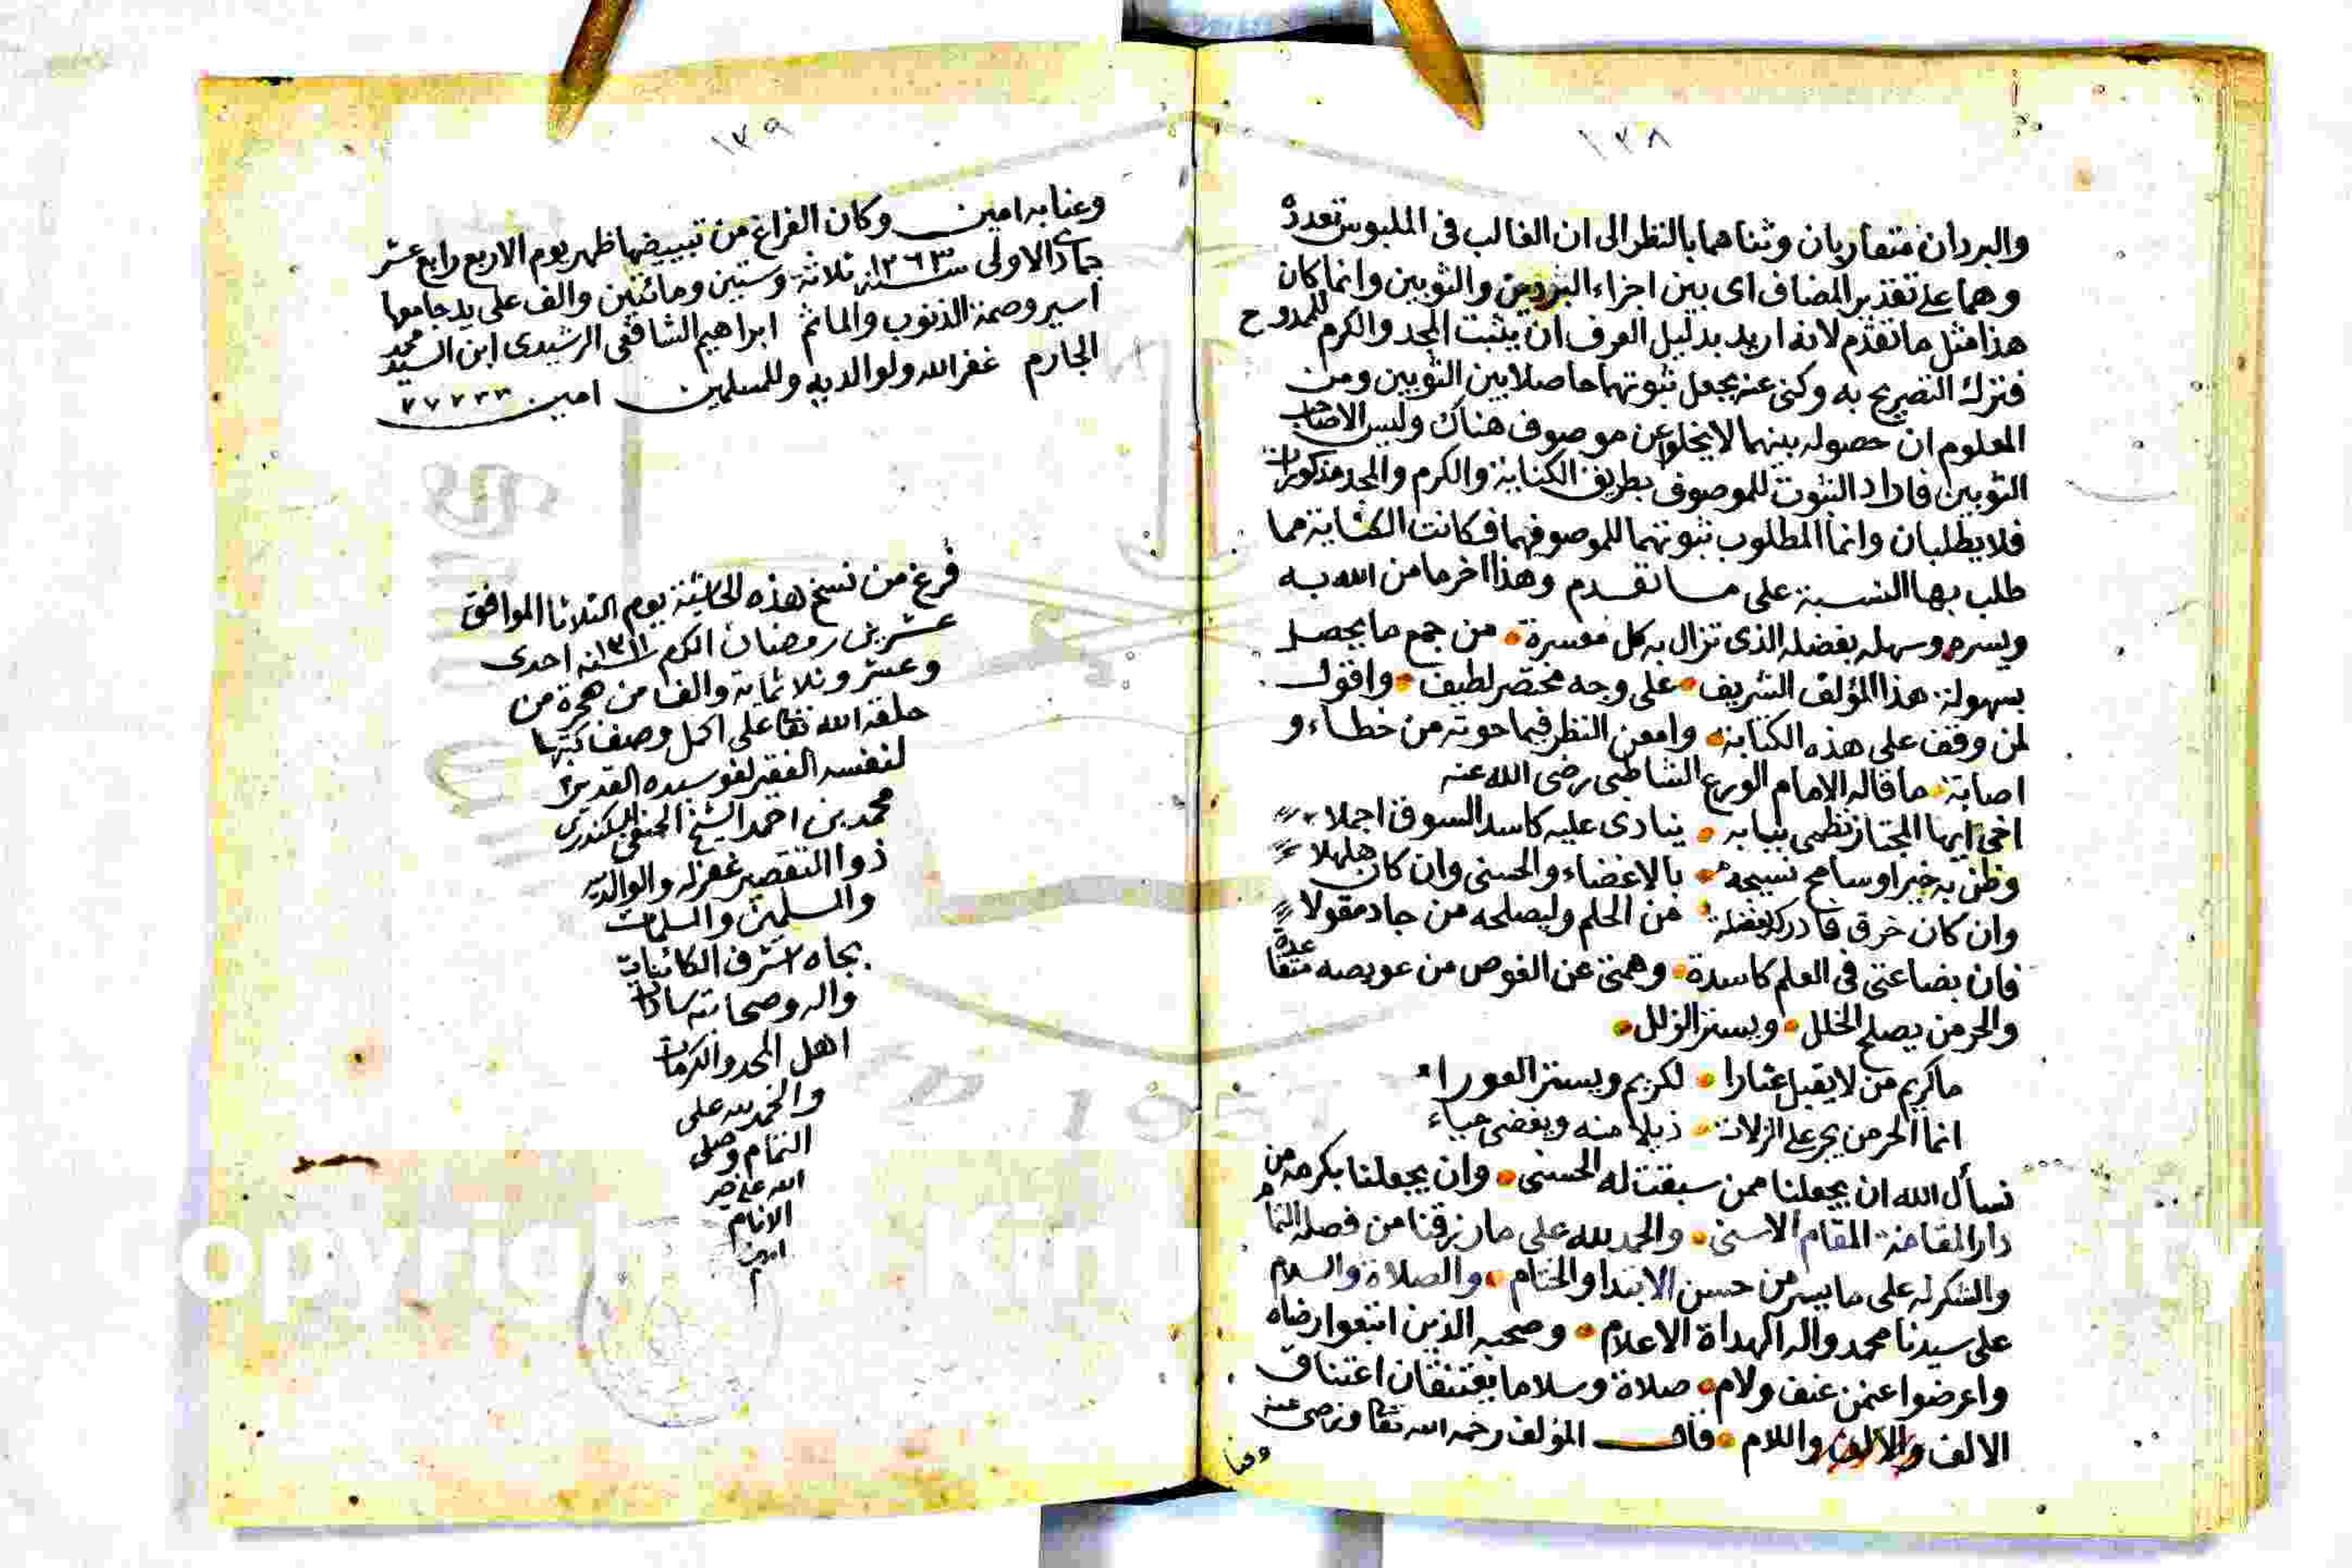 ١٣٨
والبردان متقاربان وثناهما بالنظر الى ان الغالب فى الملبوس تعدده
وهما على تقدير المضاف اى بين اجزاء البردين والثوبين وانما كان
هذا مثل ما تقدم لانه اريد بدليل العرف ان يثبت المجد والكرم للممدوح
فترك التصريح به وكنى عنه بجعل ثبوتهما حاصلا بين الثوبين ومن
المعلوم ان حصوله بينهما لا يخلو عن موصوف هناك وليس الا صاحب
الثوبين فافاد الثبوت للموصوف بطريق الكناية والكرم والمجد مذكوران
فلا يطلبان وانما المطلوب ثبوتهما للموصوفهما فكانت الكناية مما
طلب بها النسبة على ما تقدم وهذا اخر ما من الله به
ويسره وسهله بفضله الذى تزال به كل معسرة من جمع ما يحصل
بسهولة هذا المؤلف الشريف على وجه مختصر لطيف واقول
لمن وقف على هذه الكتابة وامعن النظر فيما حوته من خطاء و
اصابة ما قاله الامام الورع الشاطبى رضى الله عنه
اخى ايها المجتاز نظمى ببابه ينادى عليه كاسد السوق اجملا
وظن به خيرا وسامح نسيجه بالاغضاء والحسنى وان كان هلهلا
وان كان خرق فادركه بفضلة من الحلم وليصلحه من جاد مقولا
فان بضاعتى فى العلم كاسدة وهمتى عن الغوص من عويصه متقاعدة
والحر من يصلح الخلل ويستر الزلل
ما كريم من لا يقيل عثارا لكريم ويستر العورا
انما الحر من يجر على الزلات ذيلا منه ويغضى حياء
نسأل الله ان يجعلنا ممن سبقت له الحسنى وان يجعلنا بكرمه من
دار المقامة المقام الاسنى والحمد لله على ما رزقنا من فضله التام
والشكر له على ما يسر من حسن الابتدا والختام والصلاة والسلام
على سيدنا محمد واله الهداة الاعلام وصحبه الذين اتبعوا رضاه
واعرضوا عمن عنف ولام صلاة وسلاما يعتنقان اعتناق
الالف واللام قال المؤلف رحمه الله تعا ورضى عنه
وعنا
١٣٩
وعنا به امين وكان الفراغ من تبييضها ظهر يوم الاربع رابع عشر
جمادى الاولى سنة ١٢٦٣ ثلاثة وستين ومائتين والف على يد جامعها
اسير وصمة الذنوب والماثم ابراهيم الشافعى الرشيدى ابن السيد محمد
الجارم غفر الله ولوالديه وللمسلمين امين
فرغ من نسخ هذه الحاشية يوم الثلاثا الموافق
عشرين رمضان الكرم سنة ١٣١١ احدى
وعشر وثلاثماية والف من هجرة من
خلقه الله تعا على اكمل وصف كتبها
لنفسه الفقير لعفو سيده القدير
محمد بن احمد الشيخ الحنفى السكندرى
ذو التقصير غفر له والوالديه
والمسلمين والمسلمات
بجاه اشرف الكائنات
واله وصحابته سادات
اهل المجد والكرمات
والحمد لله على
التمام وصلى
الله على خير
الانام
امين
م
opyright King